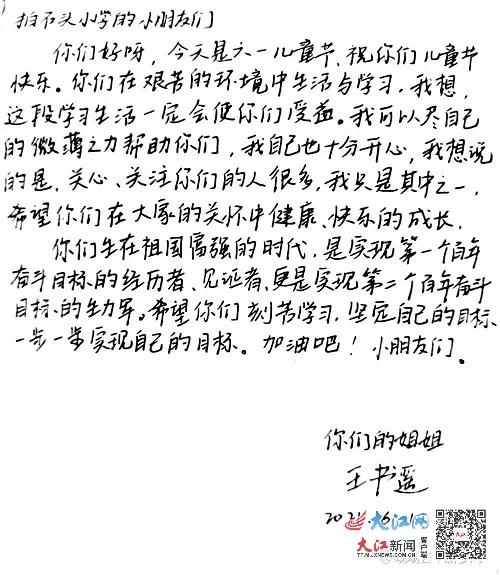 拍石头小学的小朋友们
你们好呀，今天是六一儿童节，祝你们儿童节
快乐。你们在艰苦的环境中生活与学习，我想，
这段学习生活一定会使你们受益。我可以尽自己
的微薄之力帮助你们，我自己也十分开心，我想说
的是，关心、关注你们的人很多，我只是其中之一，
希望你们在大家的关怀中健康、快乐的成长，
你们生在祖国富强的时代，是实现第一个百年
奋斗目标的经历者、见证者，更是实现第二个百年奋斗
目标的生力军。希望你们刻苦学习，坚定自己的目标、
一步一步实现自己的目标。加油吧！小朋友们。
你们的姐姐
王书遥
2021.6.1
大江网
大江新闻
客户端
TT.M.JXNEWS.COM.CN